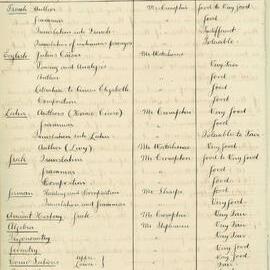 French Author Mr Crompton Good to Very Good
Grammar " Good
Translation into French " Indifferent
Translation of unknown passages " Tolerable
English Julius Caesar Mr Waterhouse
Parsing and Analysis " Very Fair
Author " Good
Literature to Queen Elizabeth " Good
Composition " Good
Latin Authors (Horace Cicero) Mr Crompton Very Good
Grammar " Good
Translation into Latin " Tolerable to Fair
Author (Livy) Mr Waterhouse Good
Greek Translation Mr Crompton Good to Very Good
Grammar " Good
Composition " Good
German Reading and Composition Mr Sharpe Good
Translation and Grammar " Good
Ancient History Greek Mr Crompton Very Fair
Algebra Mr Very Fair
Trigonometry " Very Good
Geometry " Very Fair
Conic Sections Upper " Very Good
Lower " Fair